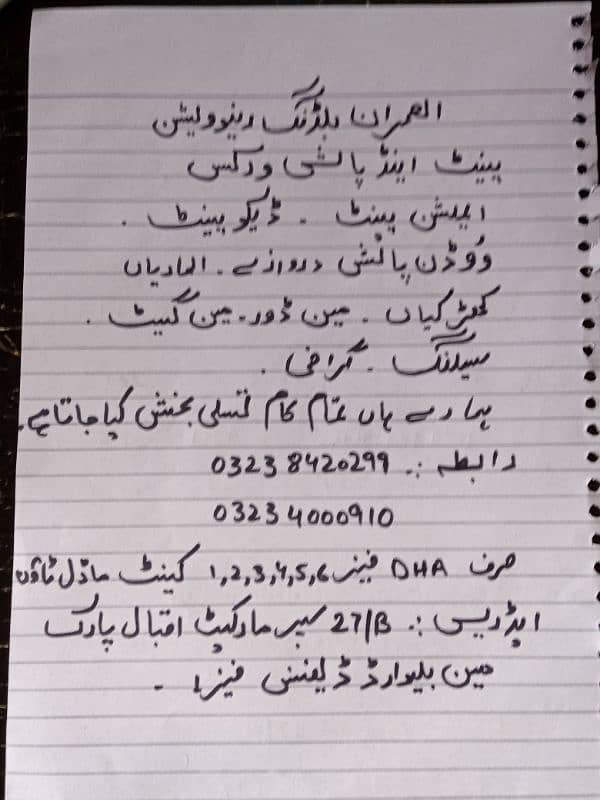 العمران بلڈنگ رینوولیشن
پینٹ اینڈ پالشی ورکس
ایملشن پینٹ . ڈیکو پینٹ .
ووڈن پالش دروازے . الماریاں
کھڑکیاں . مین ڈور . مین گیٹ .
سیلنگ . گرافی .
ہمارے ہاں تمام کام تسلی بخش کیا جاتا ہے .
رابطہ :. 0323 8420299
0323 4000910
صرف DHA فیز 1,2,3,4,5,6 کینٹ ماڈل ٹاؤن
ایڈریس :. 27/B سپر مارکیٹ اقبال پارک
مین بلیوارڈ ڈیفنس فیز 1 .